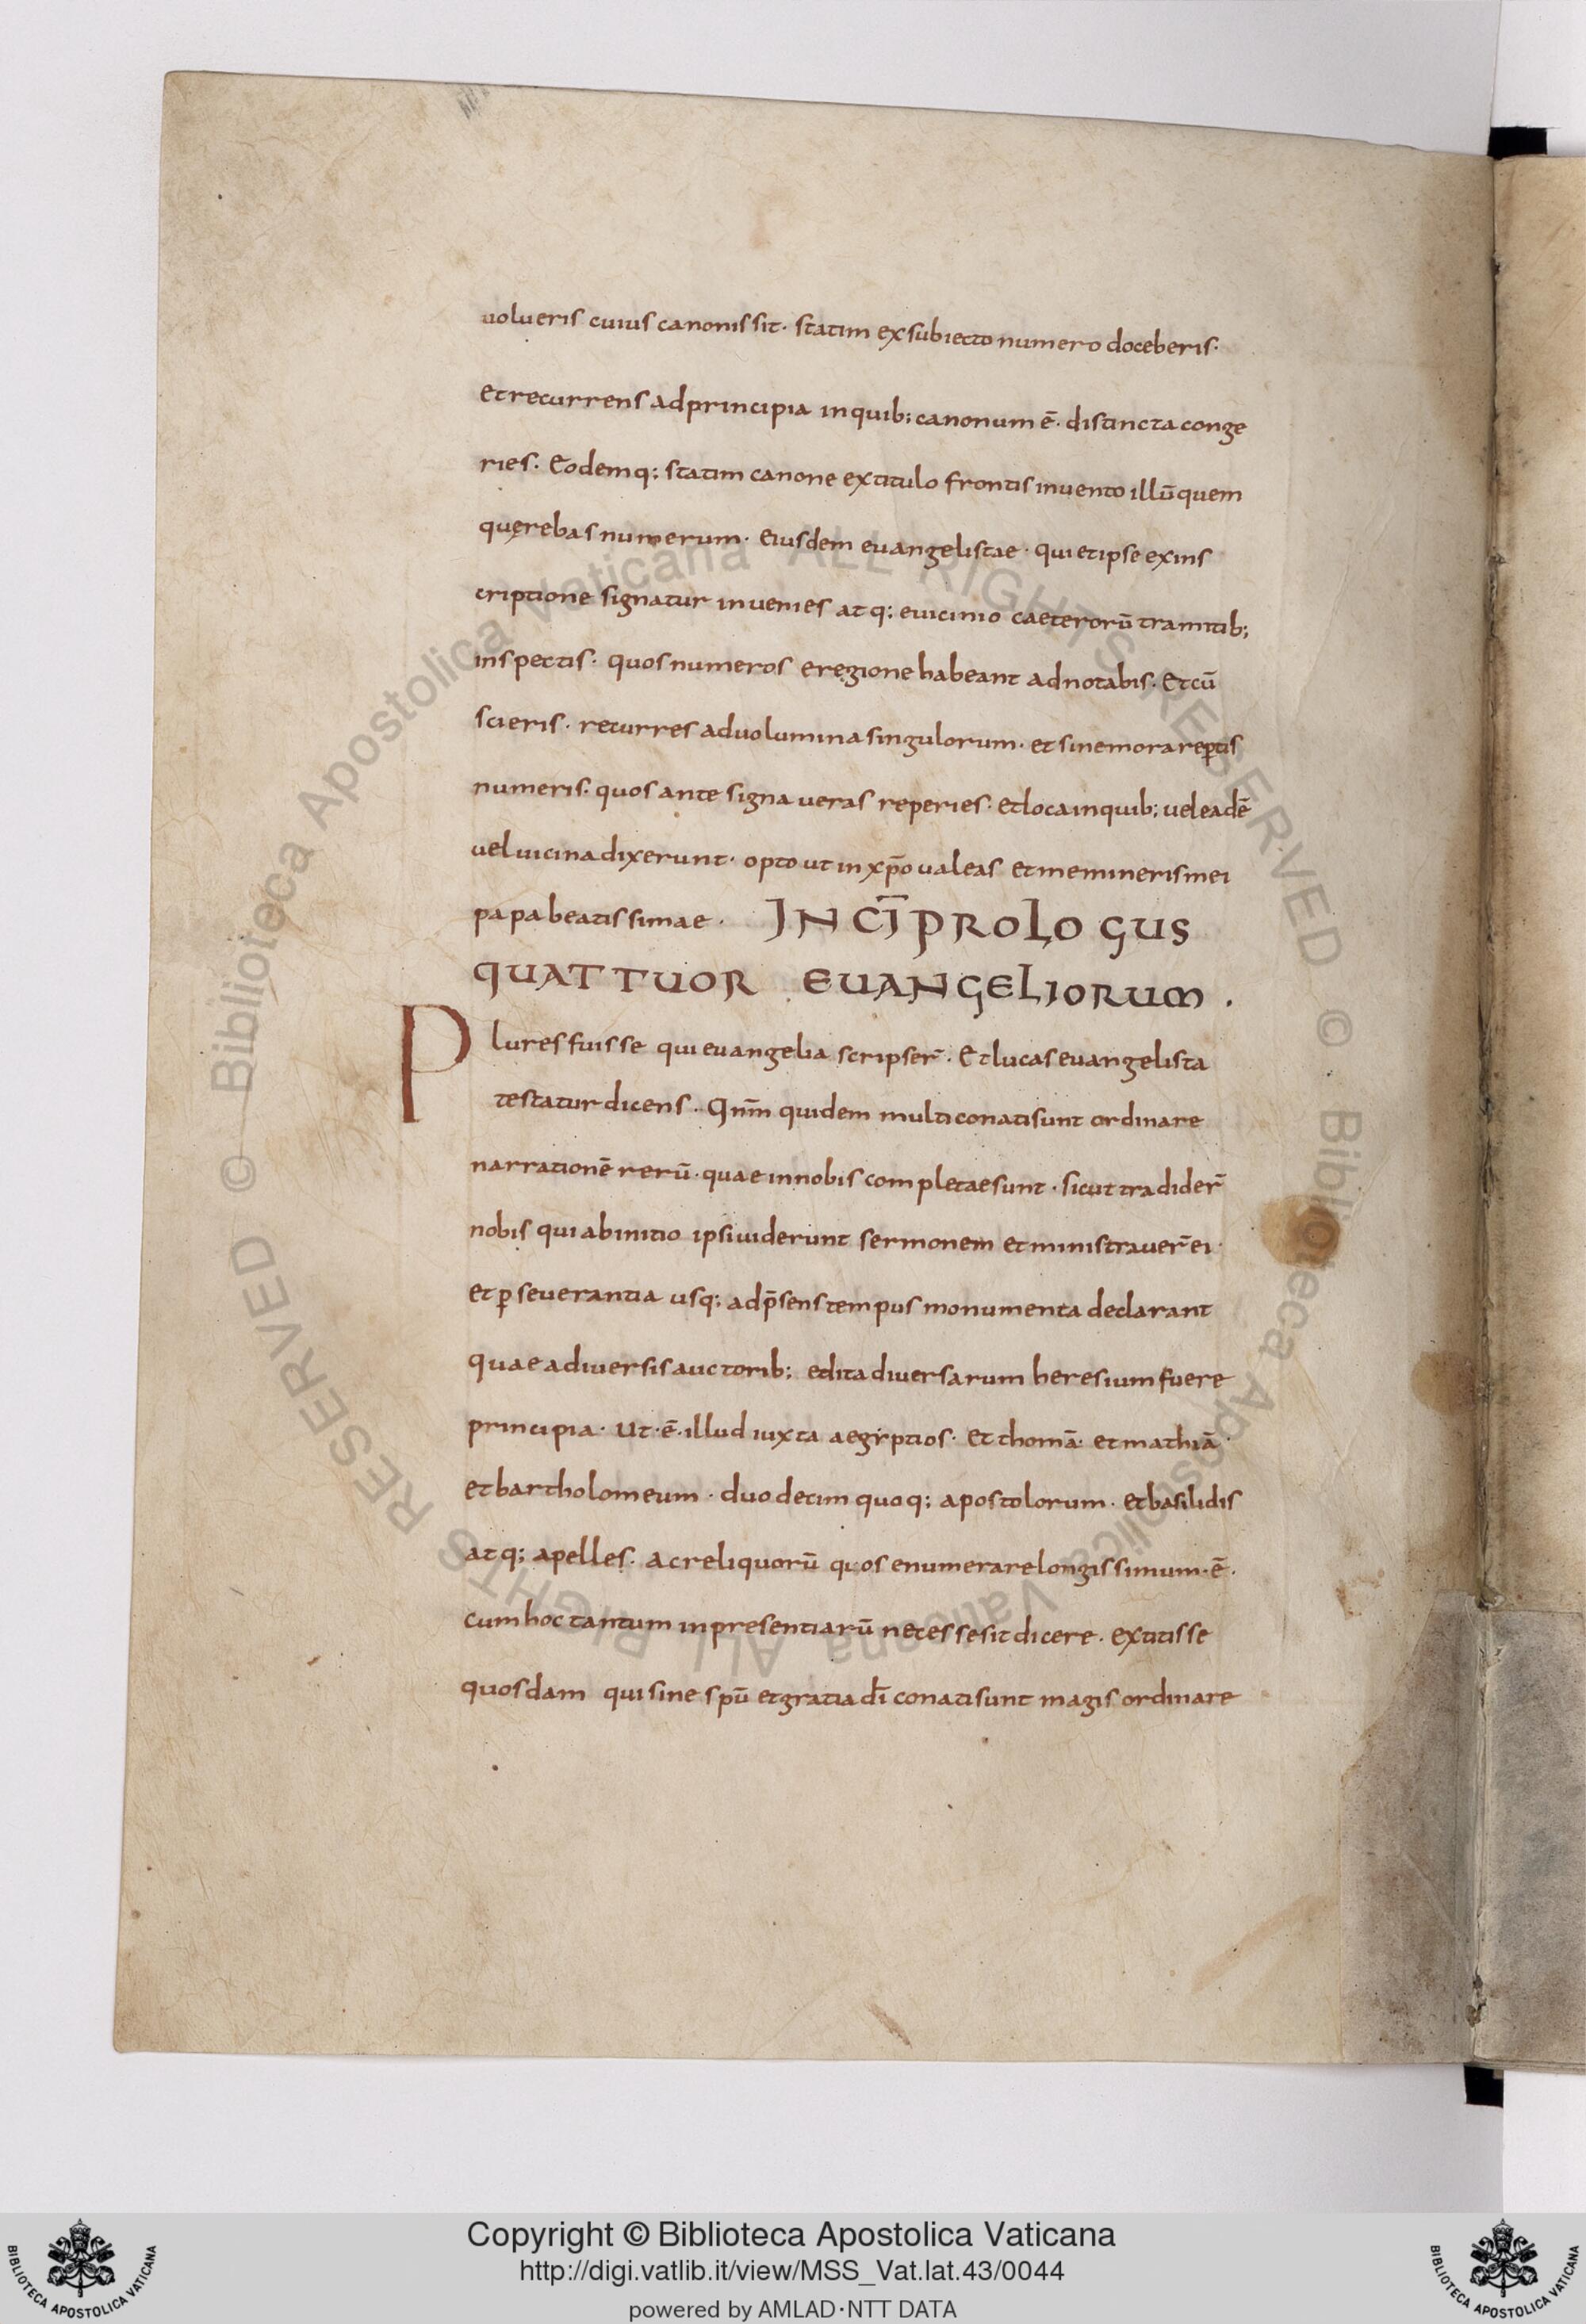 uolueris cuius canonis sit· statim ex subiecto numero doceberis·
et recurrens ad principia in quib; canonum ē· distincta conge
ries· Eodemq; statim canone ex titulo frontis inuento illū quem
quęrebas numerum· eiusdem euangelistae· qui et ipse ex ins
criptione signatur inuenies atq; e uicinio caeterorū tramitib;
inspectis· quos numeros e regione habeant adnotabis· Et cū
scieris· recurres ad uolumina singulorum· et sine mora rep̄tis
numeris· quos ante signaueras reperies· et loca in quib; uel eadē
uel uicina dixerunt· opto ut in xp̄o ualeas et memineris mei
papa beatissimae· INCI̅ PROLOGUS
QUATTUOR EUANGELIORUM .
Plures fuisse qui euangelia scripser̄· Et lucas euangelista
testatur dicens· Qnm̄ quidem multi conati sunt ordinare
narrationē rerū· quae in nobis completae sunt· sicut tradider̄
nobis qui ab initio ipsi uiderunt sermonem et ministrauer̄ ei·
et ꝑseuerantia usq; ad p̄sens tempus monumenta declarant
quae a diuersis auctorib; edita diuersarum heresium fuere
principia· Ut·ē·illud iuxta aegyptios· et thomā· et mathiā·
et bartholomeum· duodecim quoq; apostolorum· et basilidis
atq; apelles· ac reliquorū quos enumerare longissimum·ē·
cum hoc tantum in presentiarū necesse sit dicere· extitisse
quosdam qui sine sp̄u et gratia dī conati sunt magis ordinare
© Biblioteca Apostolica Vaticana ALL RIGHTS RESERVED
© Biblioteca Apostolica Vaticana ALL RIGHTS RESERVED
BIBLIOTECA APOSTOLICA VATICANA
Copyright © Biblioteca Apostolica Vaticana
http://digi.vatlib.it/view/MSS_Vat.lat.43/0044
powered by AMLAD·NTT DATA
BIBLIOTECA APOSTOLICA VATICANA